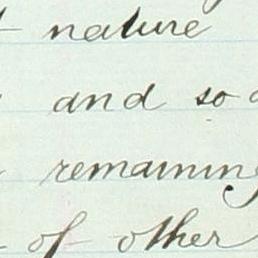 nature
and so
remaining
of other